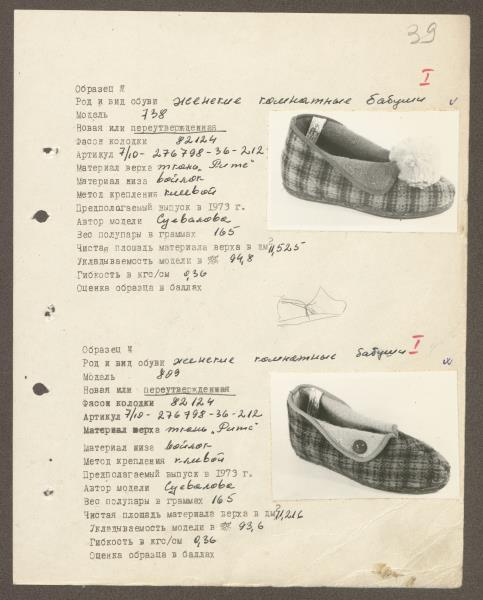 39
I
Образец №
Род и вид обуви женские комнатные бабуши v
Модель 738
Новая или переутвержденная
Фасон колодки 82124
Артикул 7/10-276798-36-212
Материал верха ткань „Ритс"
Материал низа войлок
Метод крепления клеевой
Предполагаемый выпуск в 1973 г.
Автор модели Суевалова
Вес полупары в граммах 165
Чистая площадь материала верха в дм² 11,525
Укладываемость модели в 94,8
Гибкость в кгс/см 0,36
Оценка образца в баллах
I
Образец №
Род и вид обуви женские комнатные бабуши v
Модель 809
Новая или переутвержденная
Фасон колодки 82124
Артикул 7/10-276798-36-212
Материал верха ткань „Ритс"
Материал низа войлок
Метод крепления клеевой
Предполагаемый выпуск в 1973 г.
Автор модели Суевалова
Вес полупары в граммах 165
Чистая площадь материала верха в дм² 11,216
Укладываемость модели в 93,6
Гибкость в кгс/см 0,36
Оценка образца в баллах